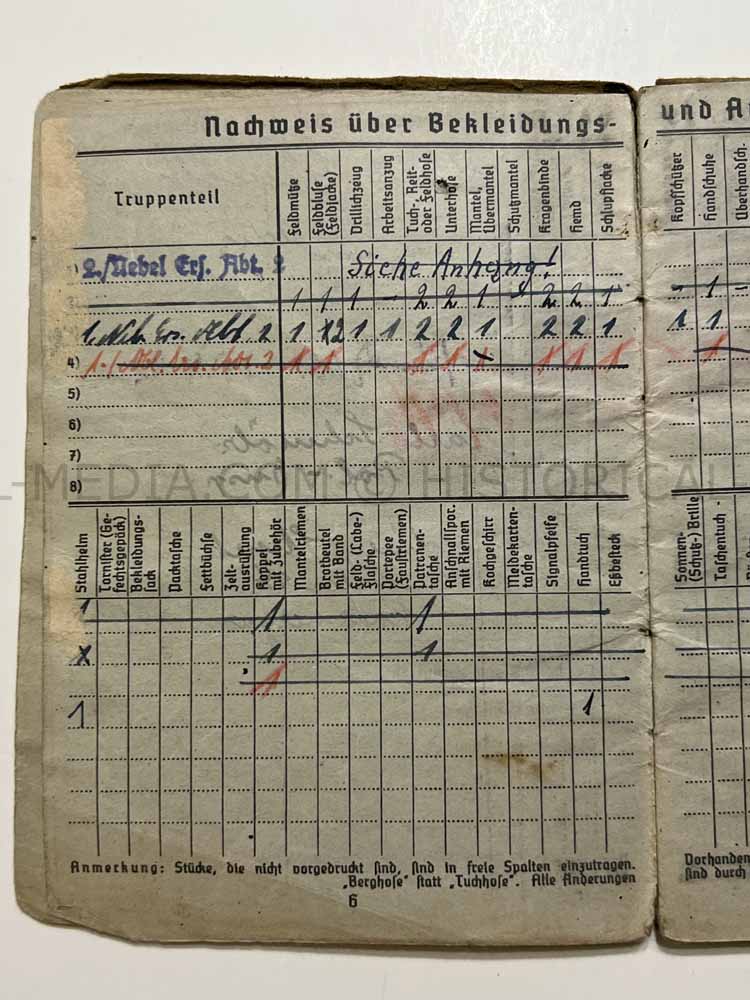 Nachweis über Bekleidungs-
und A
Truppenteil
Feldmütze
Feldbluse (Feldjacke)
Drillichzeug
Arbeitsanzug
Tuch-, Reit- oder Feldhose
Unterhose
Mantel, Übermantel
Schutzmantel
Kragenbinde
Hemd
Schlupfjacke
Kopfschützer
Handschuhe
Überhandsch.
2./Nebel Ers. Abt. 2
Siehe Anhang!
1 1 1 – 2 2 1 – 2 2 1 – 1 –
1. Neb. Ers. Abt. 2 1 2 1 1 2 2 1 2 2 1 1 1
4) 1 1 1 1 1 1 1 1
5)
6)
7)
8)
L-MEDIA.COM © HISTORICAL-
Stahlhelm
Tornister (Gefechtsgepäck)
Bekleidungssack
Packtasche
Fettbüchse
Zeltausrüstung
Koppel mit Zubehör
Mantelriemen
Brotbeutel mit Band
Feld-(Labe-) Flasche
Portepee (Faustriemen)
Patronentasche
Anschnallspor. mit Riemen
Kochgeschirr
Meldekartentasche
Signalpfeife
Handtuch
Eßbesteck
Sonnen- (Schutz-) Brille
Taschentuch
1 1 1
x 1 1
1
1 1
Anmerkung: Stücke, die nicht vorgedruckt sind, sind in freie Spalten einzutragen.
„Berghose" statt „Tuchhose". Alle Änderungen
6
Vorhanden
sind durch